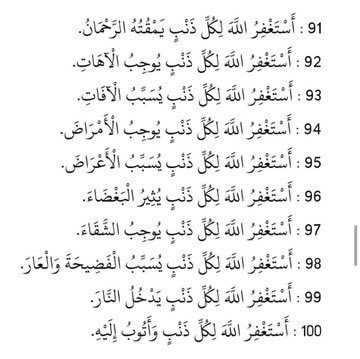 91 : أَسْتَغْفِرُ اللَّهَ لِكُلِّ ذَنْبٍ يَمْقُتُهُ الرَّحْمَانُ.
92 : أَسْتَغْفِرُ اللَّهَ لِكُلِّ ذَنْبٍ يُوجِبُ الْآهَاتِ.
93 : أَسْتَغْفِرُ اللَّهَ لِكُلِّ ذَنْبٍ يُسَبِّبُ الْآفَاتِ.
94 : أَسْتَغْفِرُ اللَّهَ لِكُلِّ ذَنْبٍ يُوجِبُ الْأَمْرَاضَ.
95 : أَسْتَغْفِرُ اللَّهَ لِكُلِّ ذَنْبٍ يُسَبِّبُ الْأَعْرَاضَ.
96 : أَسْتَغْفِرُ اللَّهَ لِكُلِّ ذَنْبٍ يُثِيرُ الْبَغْضَاءَ.
97 : أَسْتَغْفِرُ اللَّهَ لِكُلِّ ذَنْبٍ يُوجِبُ الشَّقَاءَ.
98 : أَسْتَغْفِرُ اللَّهَ لِكُلِّ ذَنْبٍ يُسَبِّبُ الْفَضِيحَةَ وَالْعَارَ.
99 : أَسْتَغْفِرُ اللَّهَ لِكُلِّ ذَنْبٍ يَدْخُلُ النَّارَ.
100 : أَسْتَغْفِرُ اللَّهَ لِكُلِّ ذَنْبٍ وَأَتُوبُ إِلَيْهِ.